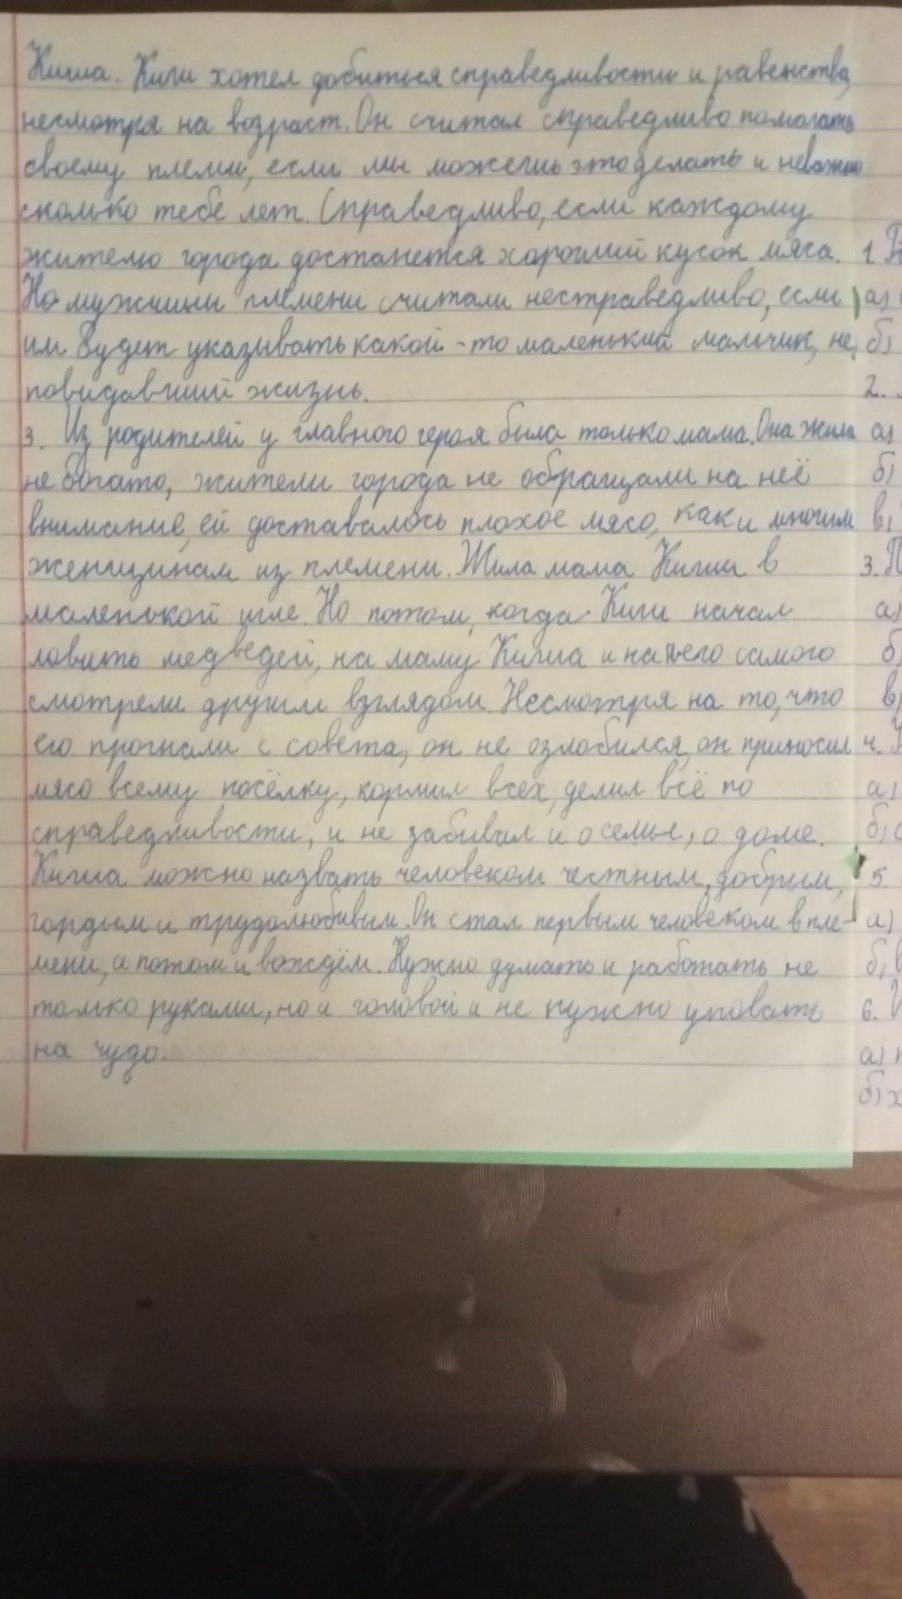 Киша. Киш хотел добиться справедливости и равенства,
несмотря на возраст. Он считал справедливо помогать
своему племни, если ты можешь это делать и неважно
сколько тебе лет. Справедливо, если каждому
жителю города достанется хороший кусок мяса.
Но мужчины племени считали несправедливо, если
им будет указывать какой-то маленький мальчик, не
повидавший жизнь.
3. Из родителей у главного героя была только мама. Она жила
не богато, жители города не обращали на неё
внимание, ей доставалось плохое мясо, как и многим
женщинам из племени. Жила мама Киша в
маленькой игле. Но потом, когда Киш начал
ловить медведей, на маму Киша и на него самого
смотрели другим взглядом. Несмотря на то, что
его прогнали с совета, он не озлобился, он приносил
мясо всему посёлку, кормил всех, делил всё по
справедливости, и не забывал и о семье, о доме.
Киша можно назвать человеком честным, добрым,
гордым и трудолюбивым. Он стал первым человеком в пле-
мени, а потом и вождём. Нужно думать и работать не
только руками, но и головой и не нужно уповать
на чудо.
1.
а)
б)
2.
а)
б)
в)
3. П
а)
б)
в)
4.
а)
б)
5.
а)
б)
6.
а)
б) х